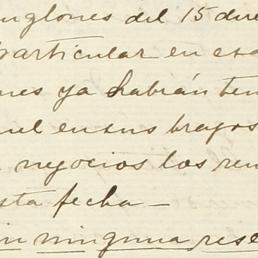 englones del 15 dire
particular en esa
nes ya habrán ten
uel en sus brazos
negocios los ren
sta fecha —
in ninguna rese